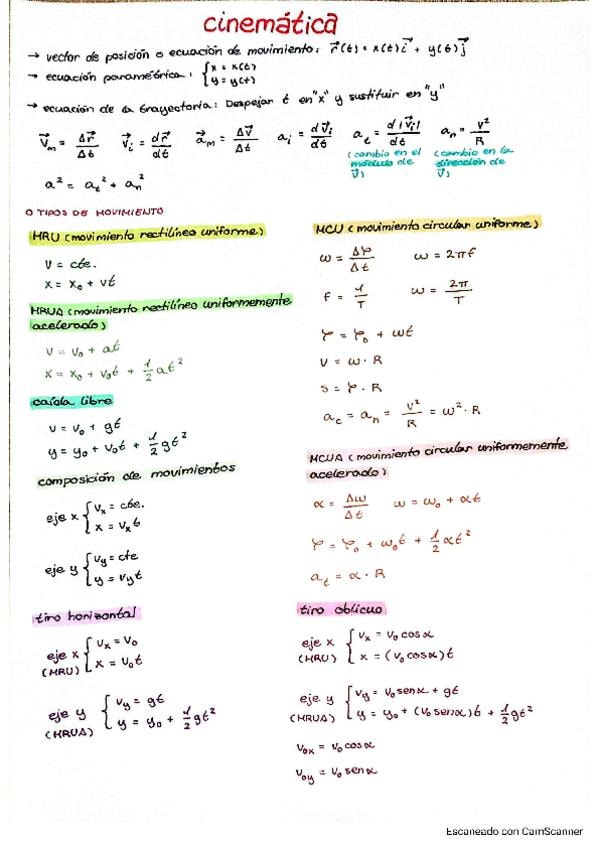 cinemática
→ vector de posición o ecuación de movimiento: r⃗(t) = x(t)i⃗ + y(t)j⃗
→ ecuación paramétrica: { x = x(t)
y = y(t)
→ ecuación de la trayectoria: Despejar t en "x" y sustituir en "y"
v⃗m = Δr⃗/Δt   v⃗i = dr⃗/dt   a⃗m = Δv⃗/Δt   ai = dv⃗i/dt   at = d|v⃗i|/dt   an = v²/R
(cambio en el módulo de v⃗)
(cambio en la dirección de v⃗)
a² = at² + an²
O TIPOS DE MOVIMIENTO
MRU (movimiento rectilíneo uniforme)
v = cte.
x = x₀ + vt
MRUA (movimiento rectilíneo uniformemente
acelerado)
v = v₀ + at
x = x₀ + v₀t + 1/2 at²
caída libre
v = v₀ + gt
y = y₀ + v₀t + 1/2 gt²
composición de movimientos
eje x { vx = cte.
x = vxt
eje y { vy = cte
y = vyt
tiro horizontal
eje x (MRU) { vx = v₀
x = v₀t
eje y (MRUA) { vy = gt
y = y₀ + 1/2 gt²
MCU (movimiento circular uniforme)
ω = Δφ/Δt   ω = 2πf
f = 1/T   ω = 2π/T
φ = φ₀ + ωt
v = ω · R
s = φ · R
ac = an = v²/R = ω² · R
MCUA (movimiento circular uniformemente
acelerado)
α = Δω/Δt   ω = ω₀ + αt
φ = φ₀ + ω₀t + 1/2 αt²
at = α · R
tiro oblicuo
eje x (MRU) { vx = v₀ cosα
x = (v₀ cosα)t
eje y (MRUA) { vy = v₀ senα + gt
y = y₀ + (v₀ senα)t + 1/2 gt²
v₀x = v₀ cosα
v₀y = v₀ senα
Escaneado con CamScanner